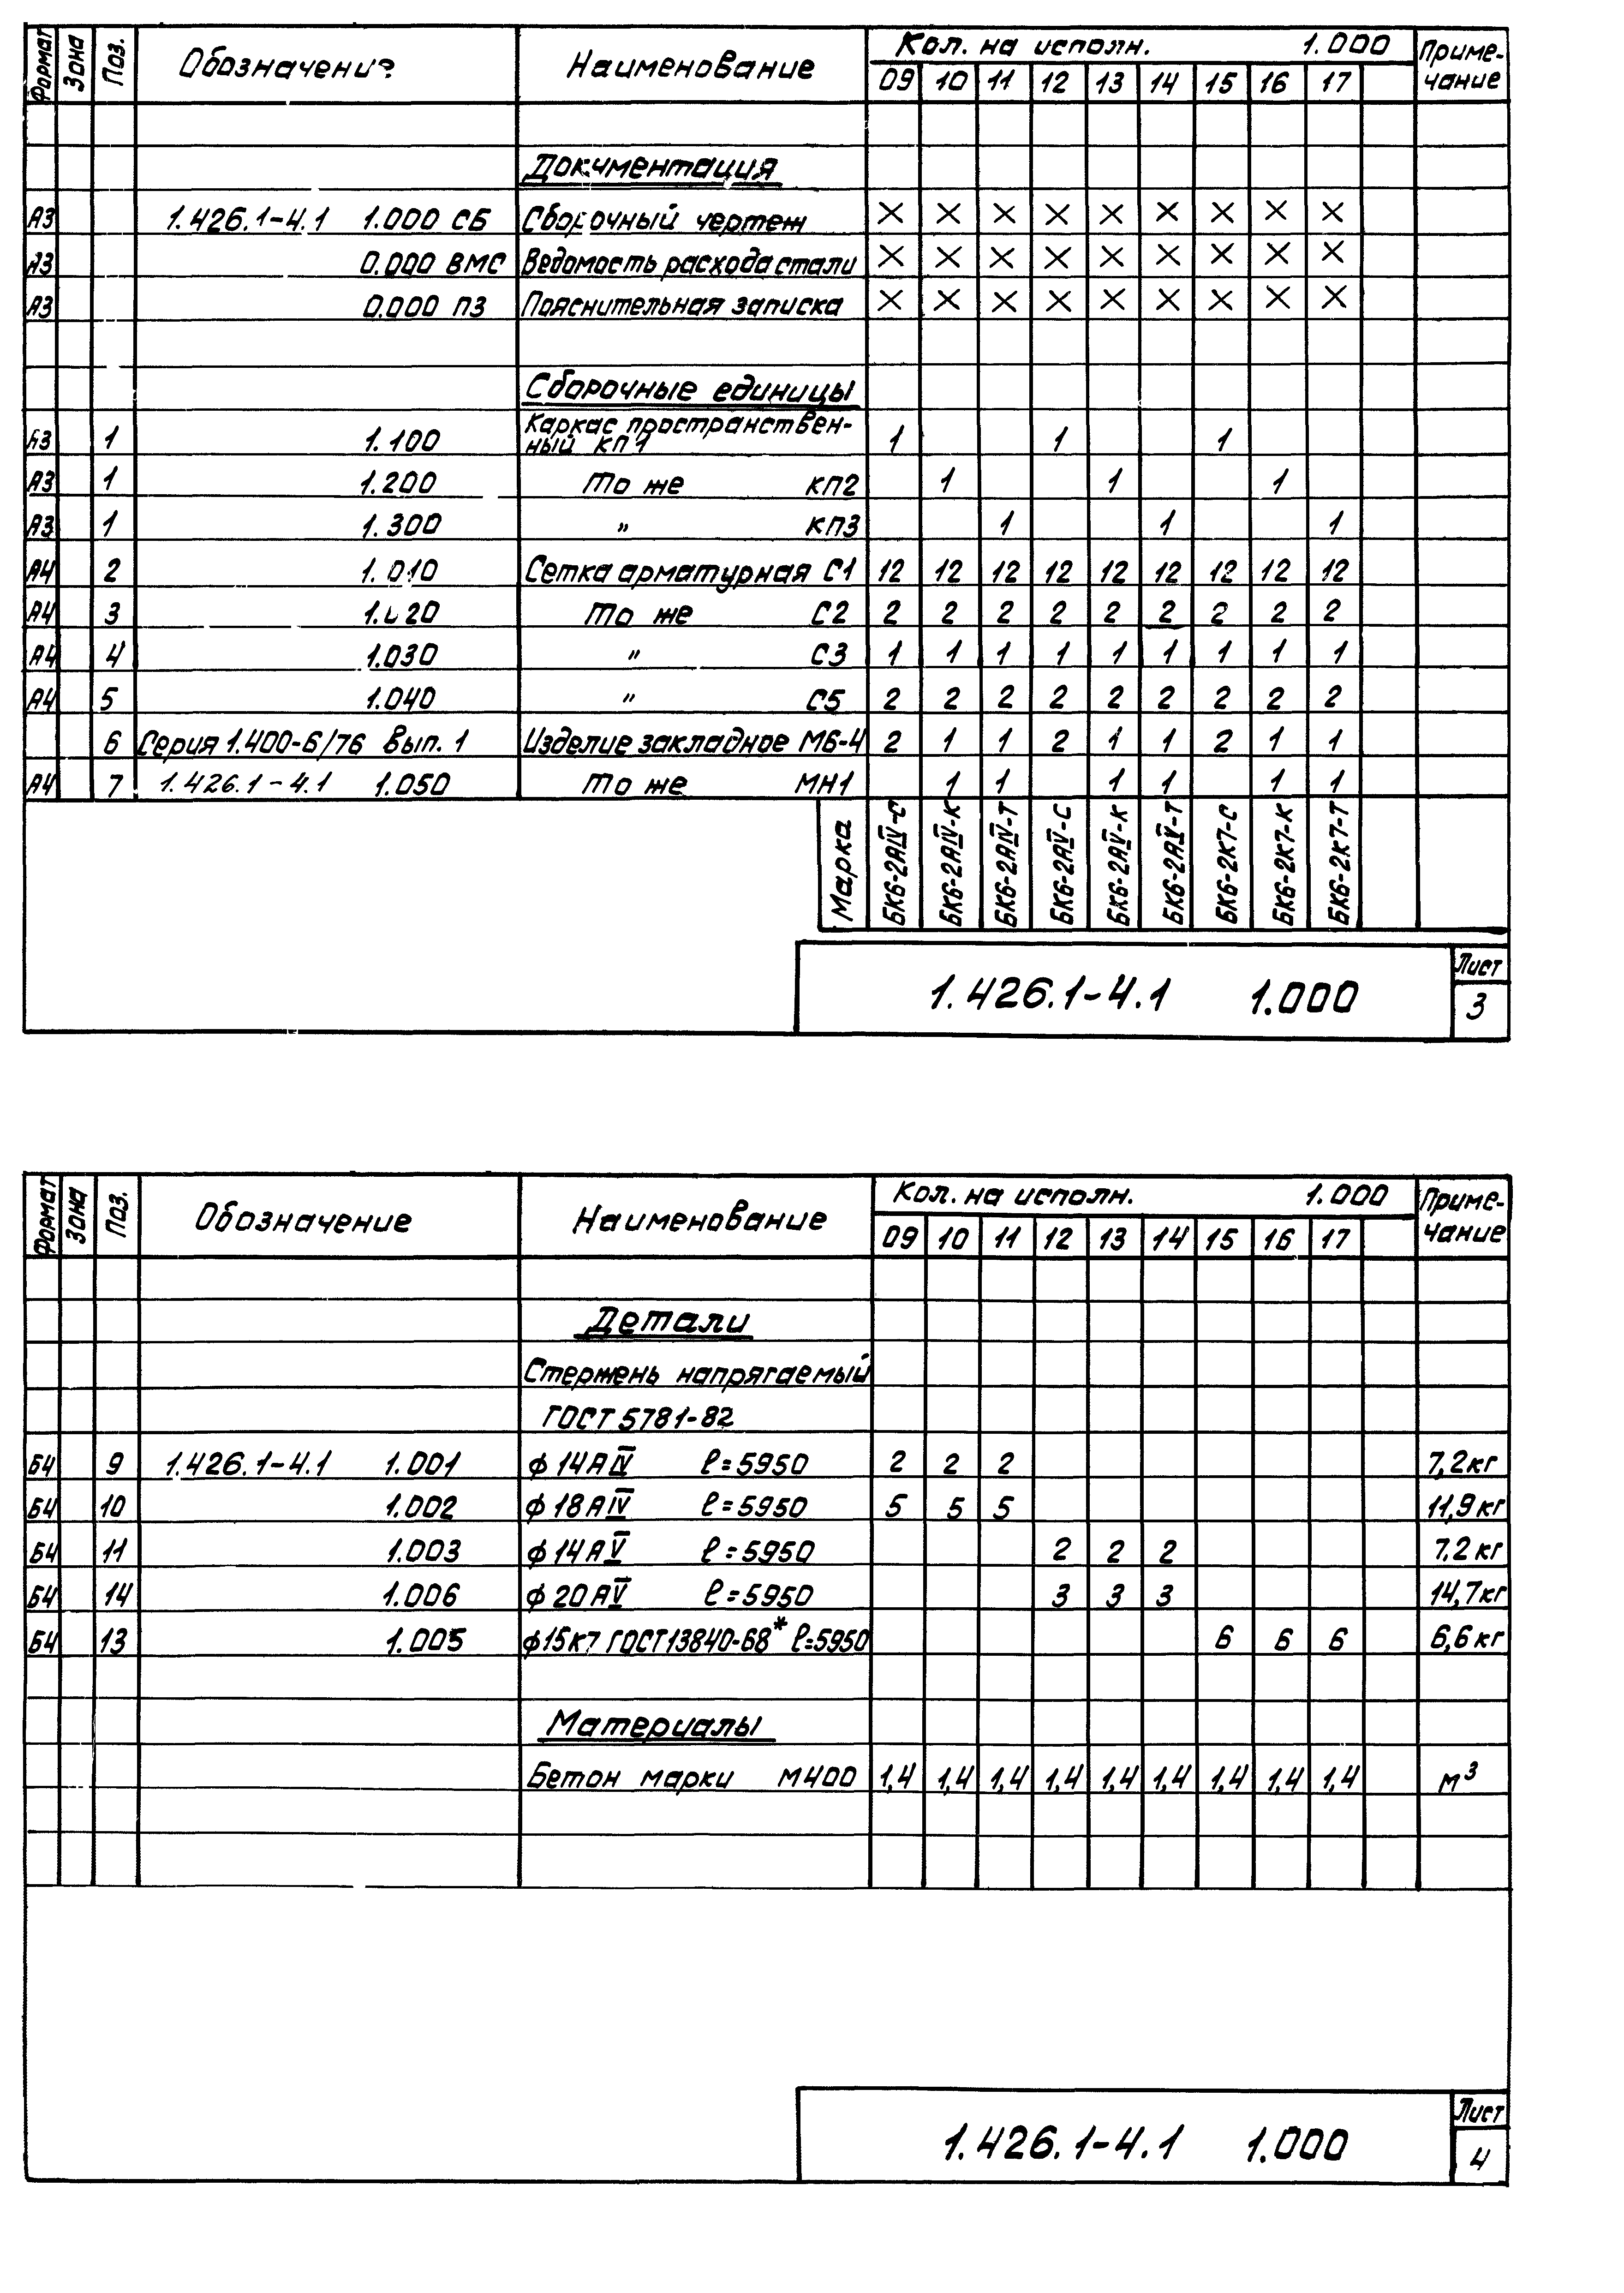 Формат Зона Поз. Обозначени Наименование Кол. на исполн. 1.000 Приме-
чание
09 10 11 12 13 14 15 16 17
Документация
А3 1.426.1-4.1 1.000 СБ Сборочный чертеж × × × × × × × × ×
А3 0.000 ВМС Ведомость расхода стали × × × × × × × × ×
А3 0.000 ПЗ Пояснительная записка × × × × × × × × ×
Сборочные единицы
Каркас пространствен-
А3 1 1.100 ный КП1 1 1 1
А3 1 1.200 То же КП2 1 1 1
А3 1 1.300 " КП3 1 1 1
А4 2 1.010 Сетка арматурная С1 12 12 12 12 12 12 12 12 12
А4 3 1.020 То же С2 2 2 2 2 2 2 2 2 2
А4 4 1.030 " С3 1 1 1 1 1 1 1 1 1
А4 5 1.040 " С5 2 2 2 2 2 2 2 2 2
6 Серия 1.400-6/76 Вып. 1 Изделие закладное М6-4 2 1 1 2 1 1 2 1 1
А4 7 1.426.1-4.1 1.050 То же МН1 1 1 1 1 1 1
Марка БК6-2АIV-С БК6-2АIV-К БК6-2АIV-Т БК6-2АV-С БК6-2АV-К БК6-2АV-Т БК6-2К7-С БК6-2К7-К БК6-2К7-Т
1.426.1-4.1 1.000 Лист
3
Формат Зона Поз. Обозначение Наименование Кол. на исполн. 1.000 Приме-
чание
09 10 11 12 13 14 15 16 17
Детали
Стержень напрягаемый
ГОСТ 5781-82
Б4 9 1.426.1-4.1 1.001 ф 14 АIV ℓ=5950 2 2 2 7,2 кг
Б4 10 1.002 ф 18 АIV ℓ=5950 5 5 5 11,9 кг
Б4 11 1.003 ф 14 АV ℓ=5950 2 2 2 7,2 кг
Б4 14 1.006 ф 20 АV ℓ=5950 3 3 3 14,7 кг
Б4 13 1.005 ф15К7 ГОСТ13840-68* ℓ=5950 6 6 6 6,6 кг
Материалы
Бетон марки М400 1,4 1,4 1,4 1,4 1,4 1,4 1,4 1,4 1,4 м³
1.426.1-4.1 1.000 Лист
4